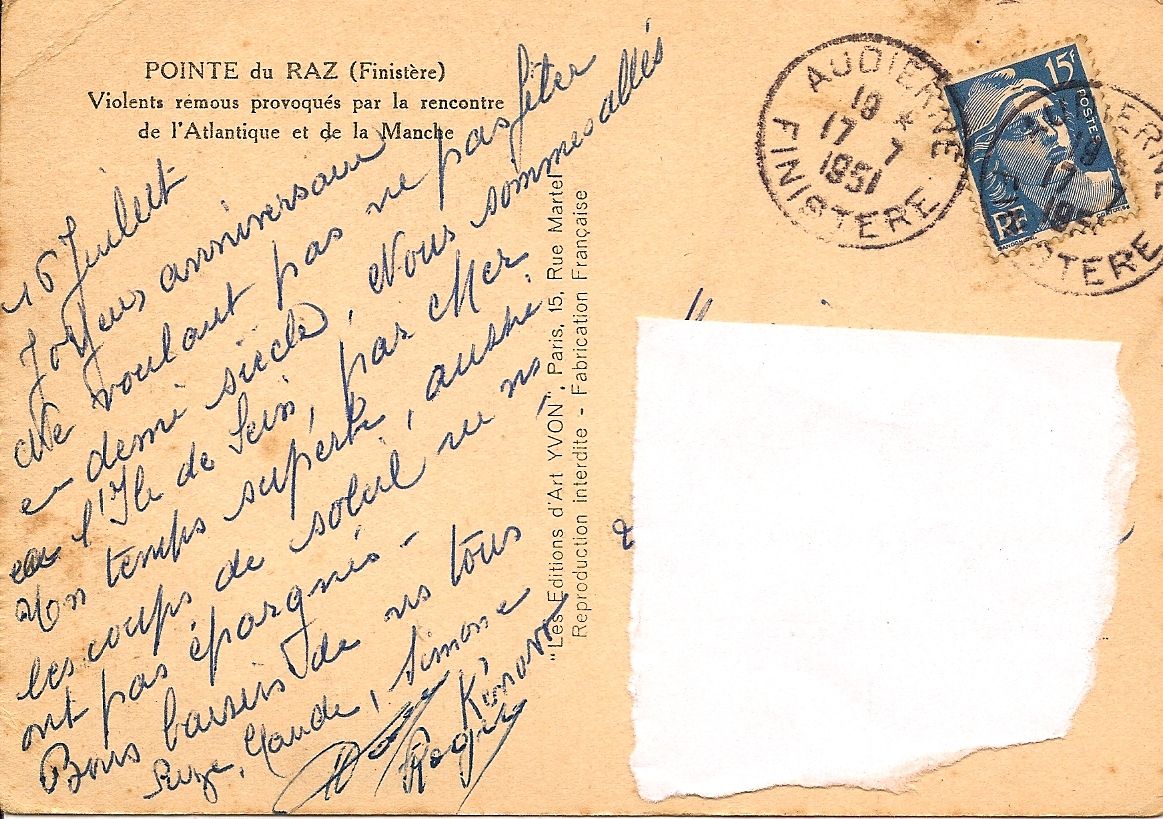 POINTE du RAZ (Finistère)
Violents remous provoqués par la rencontre
de l'Atlantique et de la Manche
16 Juillet
Joyeux anniversaire
ne voulant pas ne pas fêter
ce demi siècle. Nous sommes allés
à l'Ile de Sein, pas cher
Un temps superbe, aussi
les coups de soleil ne ns
ont pas épargnés -
Bons baisers de ns tous
Suze, Claude, Simone
Roger
"Les Editions d'Art YVON", Paris, 15, Rue Martel
Reproduction interdite - Fabrication Française
AUDIERNE
18 *
17 7
1951
FINISTERE
15F
POSTES
RF
AUDIERNE
18
17
FINISTERE